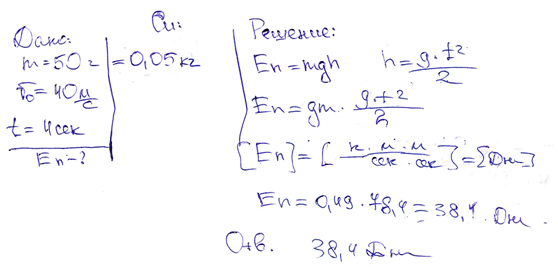 Дано:
m = 50 г
v₀ = 40 м/с
t = 4 сек
Eп - ?
Си:
= 0,05 кг
Решение:
Eп = mgh   h = g·t²/2
Eп = gm · g·t²/2
[Eп] = [н·м·м/сек·сек] = [Дж]
Eп = 0,49 · 78,4 = 38,4 Дж.
Отв. 38,4 Дж